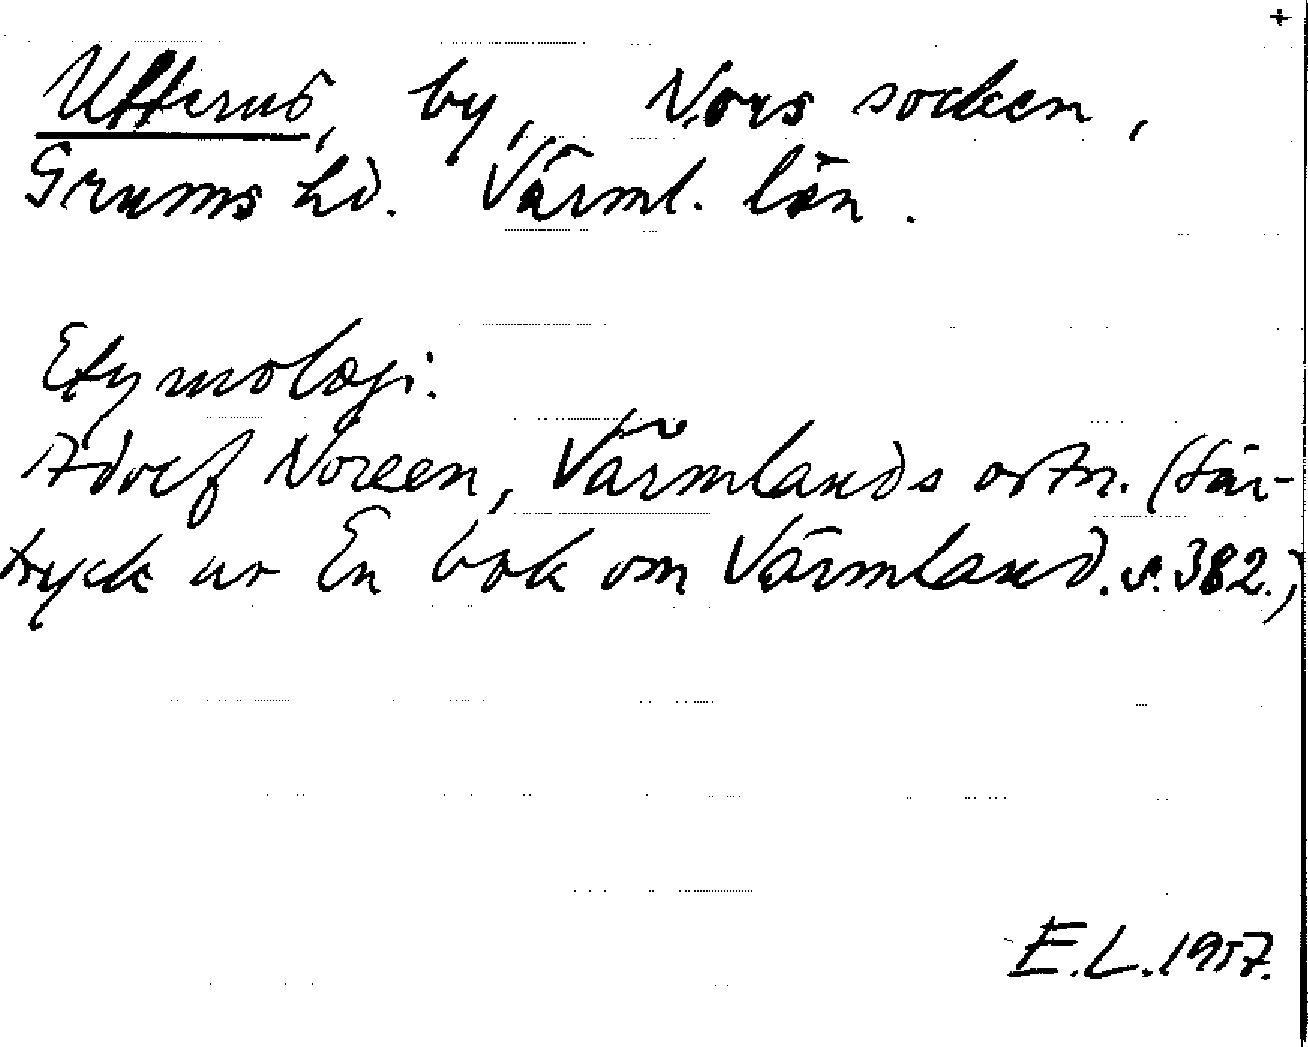 +
Utterud, by, Nors socken,
Grums hd. Värml. län.
Etymologi:
Adolf Noreen, Värmlands ortn. (Sär-
tryck ur En bok om Värmland. s. 382.)
E.L. 1957.